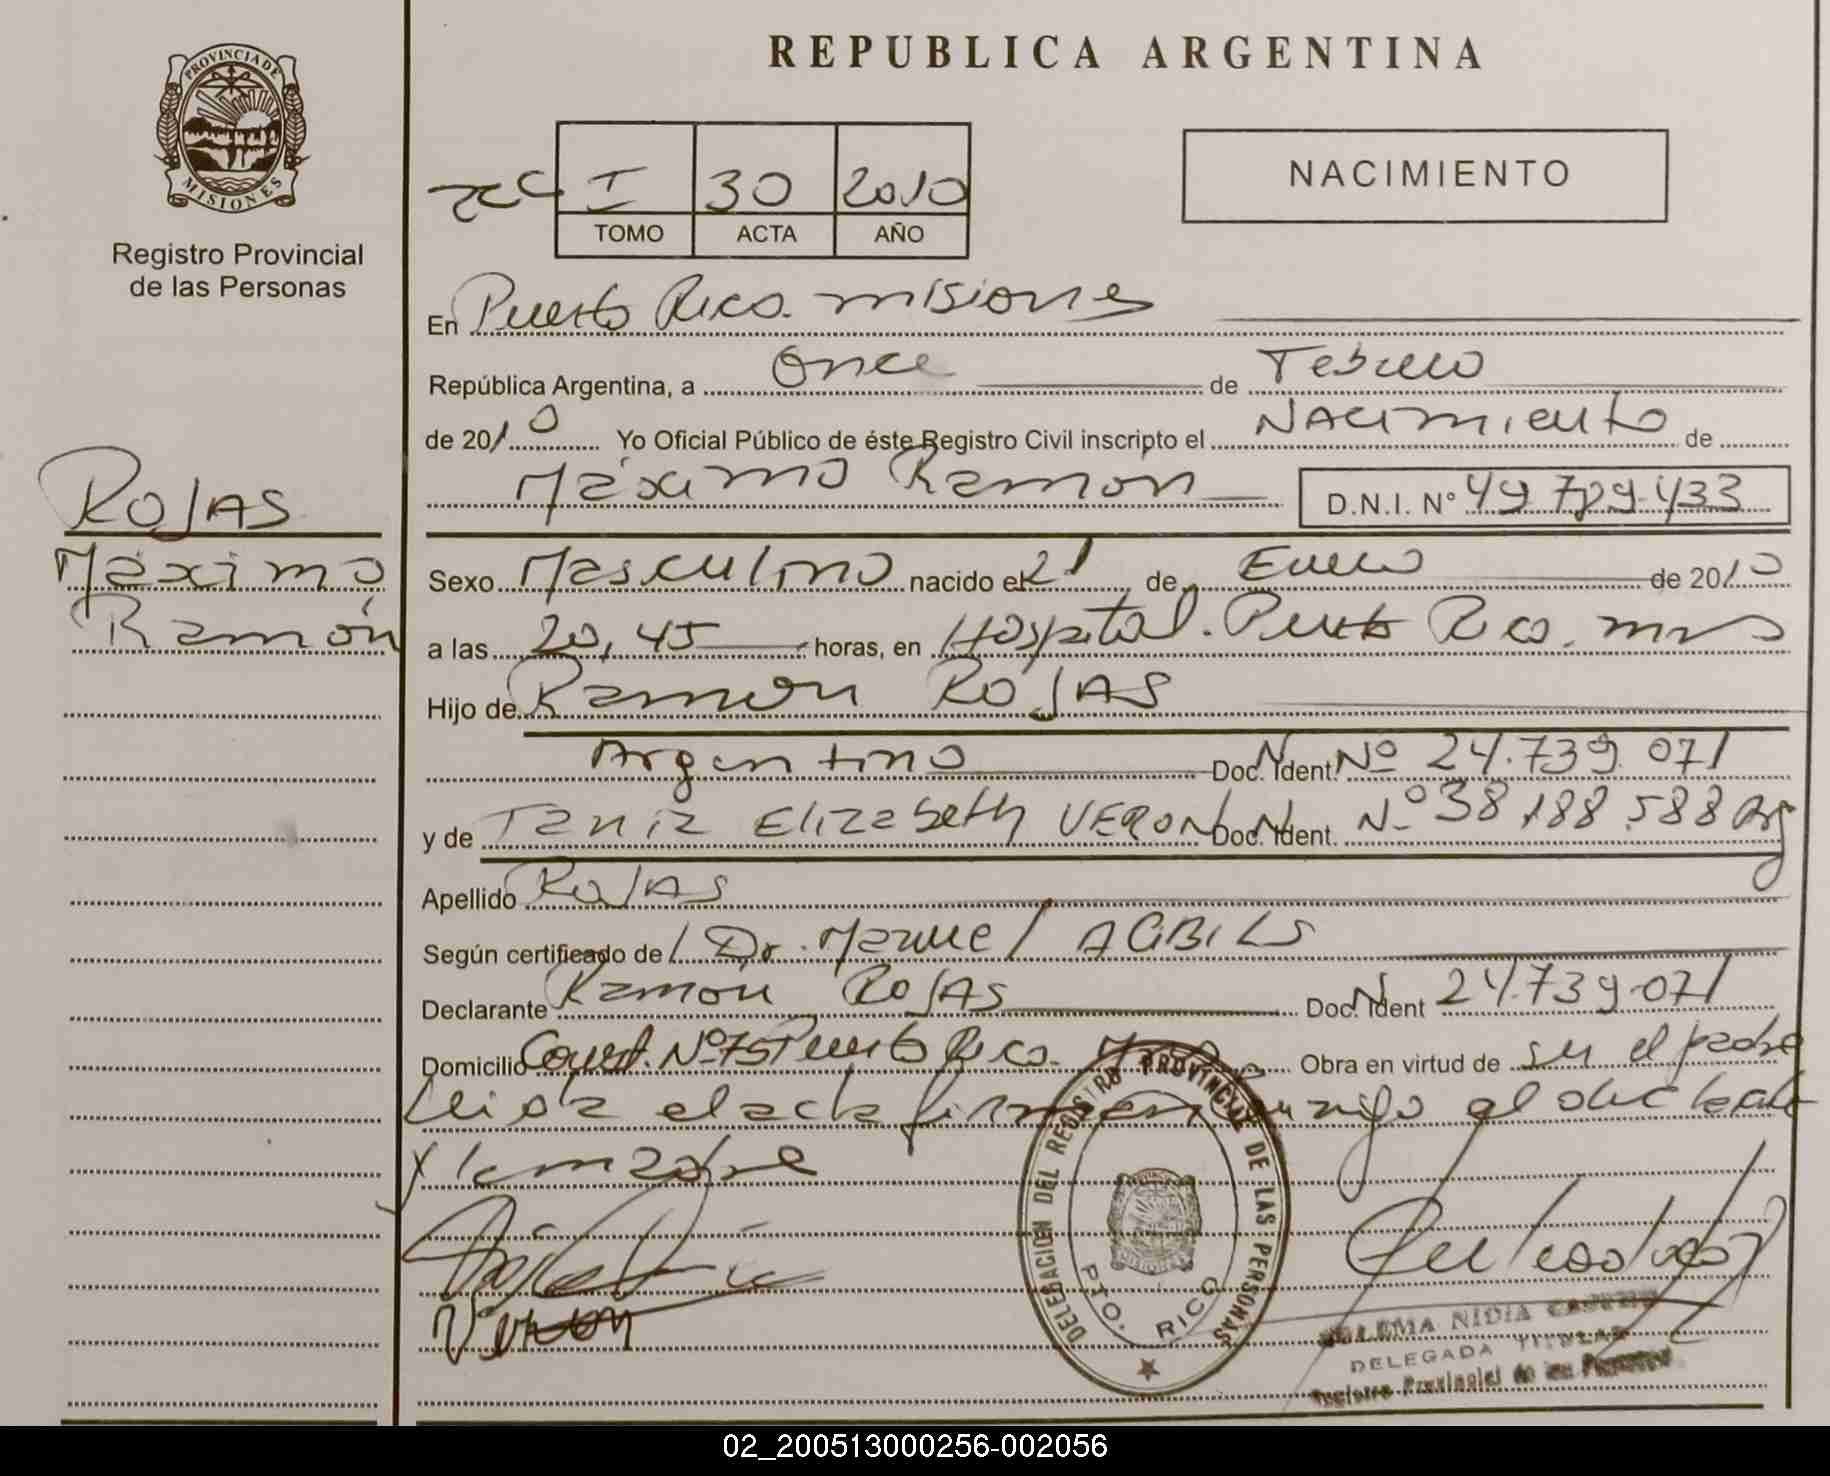 REPUBLICA ARGENTINA
PROVINCIA DE
MISIONES
Registro Provincial
de las Personas
I 30 2010
TOMO ACTA AÑO
NACIMIENTO
En Puerto Rico. misiones
República Argentina, a Once de Febrero
de 2010 Yo Oficial Público de éste Registro Civil inscripto el Nacimiento de
Máximo Ramón D.N.I. Nº 49.789.433
ROJAS
Máximo
Ramón
Sexo Masculino nacido el 21 de Enero de 2010
a las 20,45 horas, en Hospital. Puerto Rico. mns
Hijo de Ramón ROJAS
Argentino Doc. Ident. Nº 24.739.071
y de Tania Elizabeth VERON Doc. Ident. Nº 38.188.588 Arg
Apellido ROJAS
Según certificado de Dr. Manuel
Declarante Ramón ROJAS Doc. Ident 24.739.071
Domicilio Nº 75 Puerto Rico. Obra en virtud de ser el padre
Leida el acta firman conmigo el declarante
y la madre
Veron
DELEGACION DEL REGISTRO PROVINCIAL DE LAS PERSONAS
MISIONES
PTO. RICO
NIDIA
DELEGADA TITULAR
Registro Provincial de las Personas
02_200513000256-002056